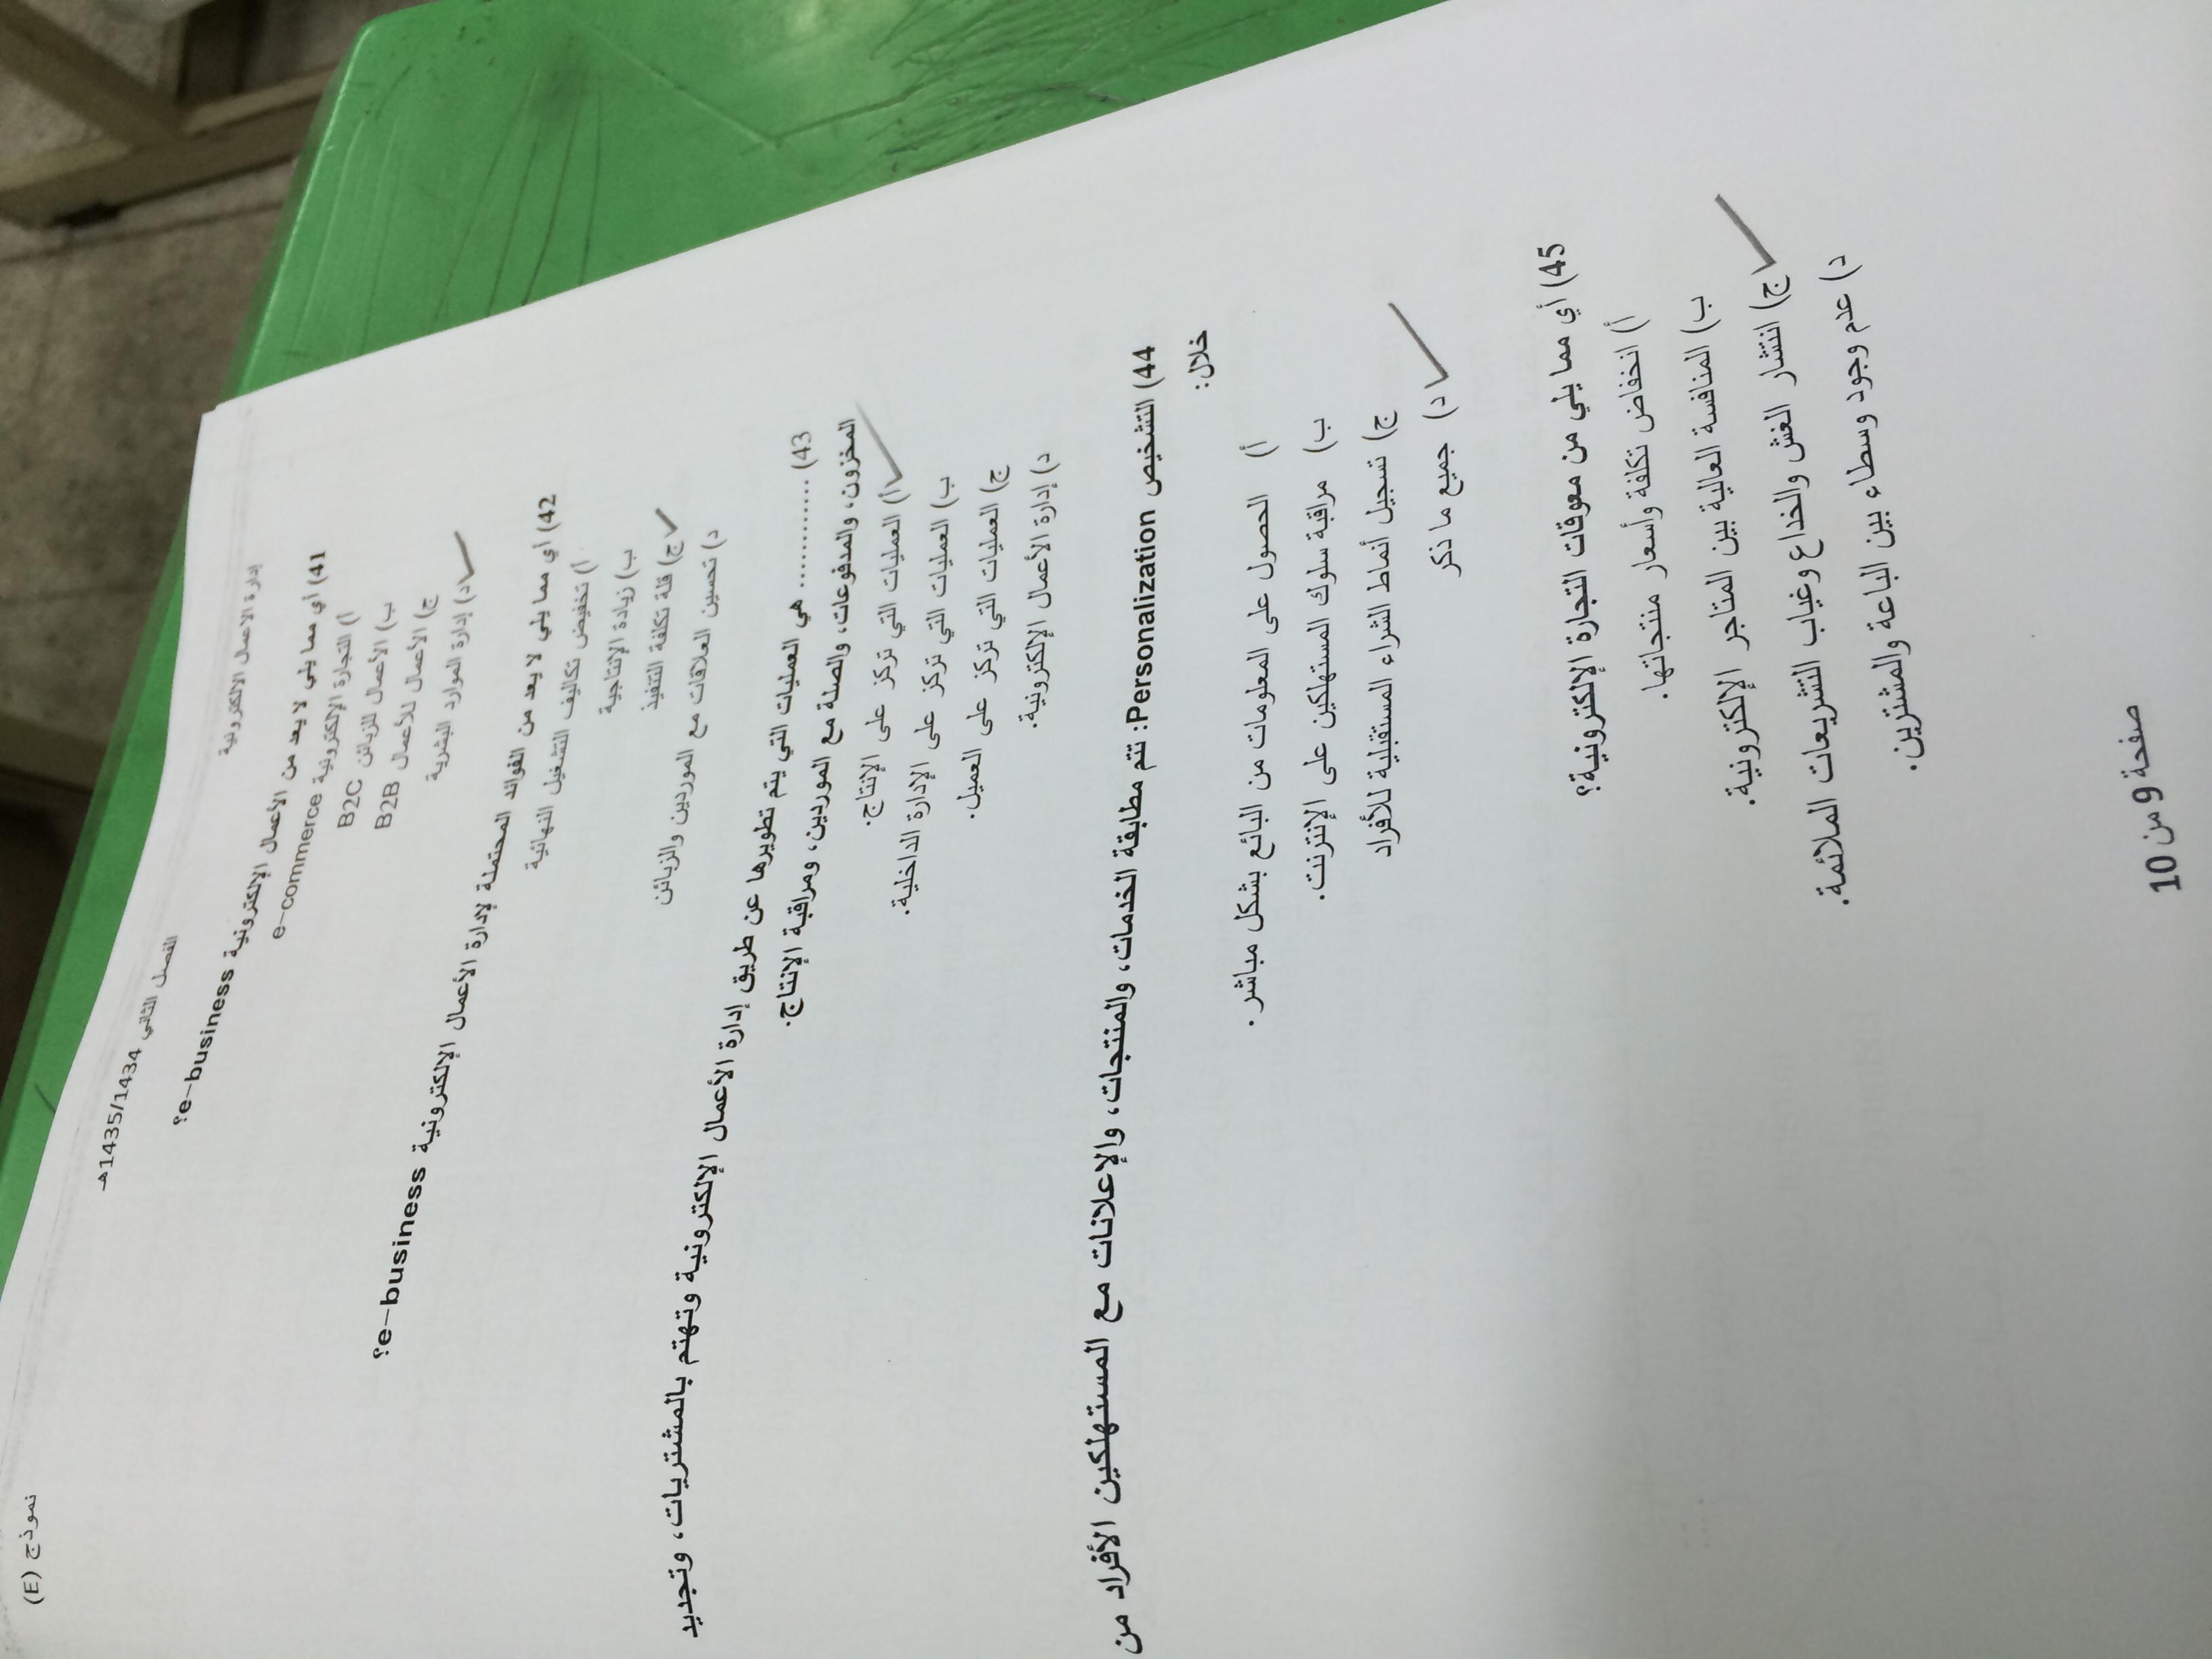 إدارة الأعمال الإلكترونية
الفصل الثاني 1435/1434هـ
نموذج (E)
41) أي مما يلي لا يعد من الأعمال الإلكترونية e-business؟
أ) التجارة الإلكترونية e-commerce
ب) الأعمال للزبائن B2C
ج) الأعمال للأعمال B2B
د) إدارة الموارد البشرية
42) أي مما يلي لا يعد من الفوائد المحتملة لإدارة الأعمال الإلكترونية e-business؟
أ) تخفيض تكاليف التشغيل النهائية
ب) زيادة الإنتاجية
ج) قلة تكلفة التنفيذ
د) تحسين العلاقات مع الموردين والزبائن
43) ........... هي العمليات التي يتم تطويرها عن طريق إدارة الأعمال الإلكترونية وتهتم بالمشتريات، وتجديد
المخزون، والمدفوعات، والصلة مع الموردين، ومراقبة الإنتاج.
أ) العمليات التي تركز على الإنتاج.
ب) العمليات التي تركز على الإدارة الداخلية.
ج) العمليات التي تركز على العميل.
د) إدارة الأعمال الإلكترونية.
44) التشخيص Personalization: تتم مطابقة الخدمات، والمنتجات، والإعلانات مع المستهلكين الأفراد من
خلال:
أ) الحصول على المعلومات من البائع بشكل مباشر.
ب) مراقبة سلوك المستهلكين على الإنترنت.
ج) تسجيل أنماط الشراء المستقبلية للأفراد
د) جميع ما ذكر
45) أي مما يلي من معوقات التجارة الإلكترونية؟
أ) انخفاض تكلفة وأسعار منتجاتها.
ب) المنافسة العالية بين المتاجر الإلكترونية.
ج) انتشار الغش والخداع وغياب التشريعات الملائمة.
د) عدم وجود وسطاء بين الباعة والمشترين.
صفحة 9 من 10